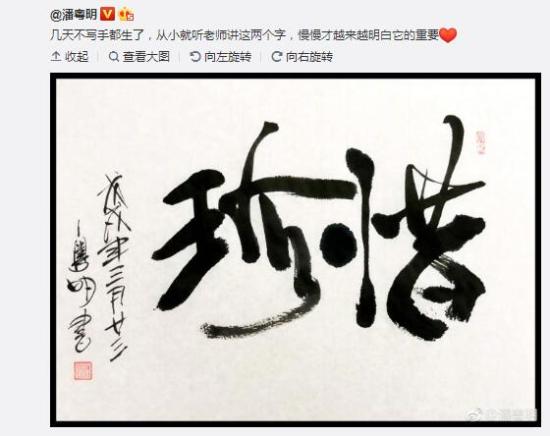 @潘粤明
几天不写手都生了，从小就听老师讲这两个字，慢慢才越来越明白它的重要❤️
收起 查看大图 向左旋转 向右旋转
珍惜
戊戌年三月廿三
粤明书
@潘粤明